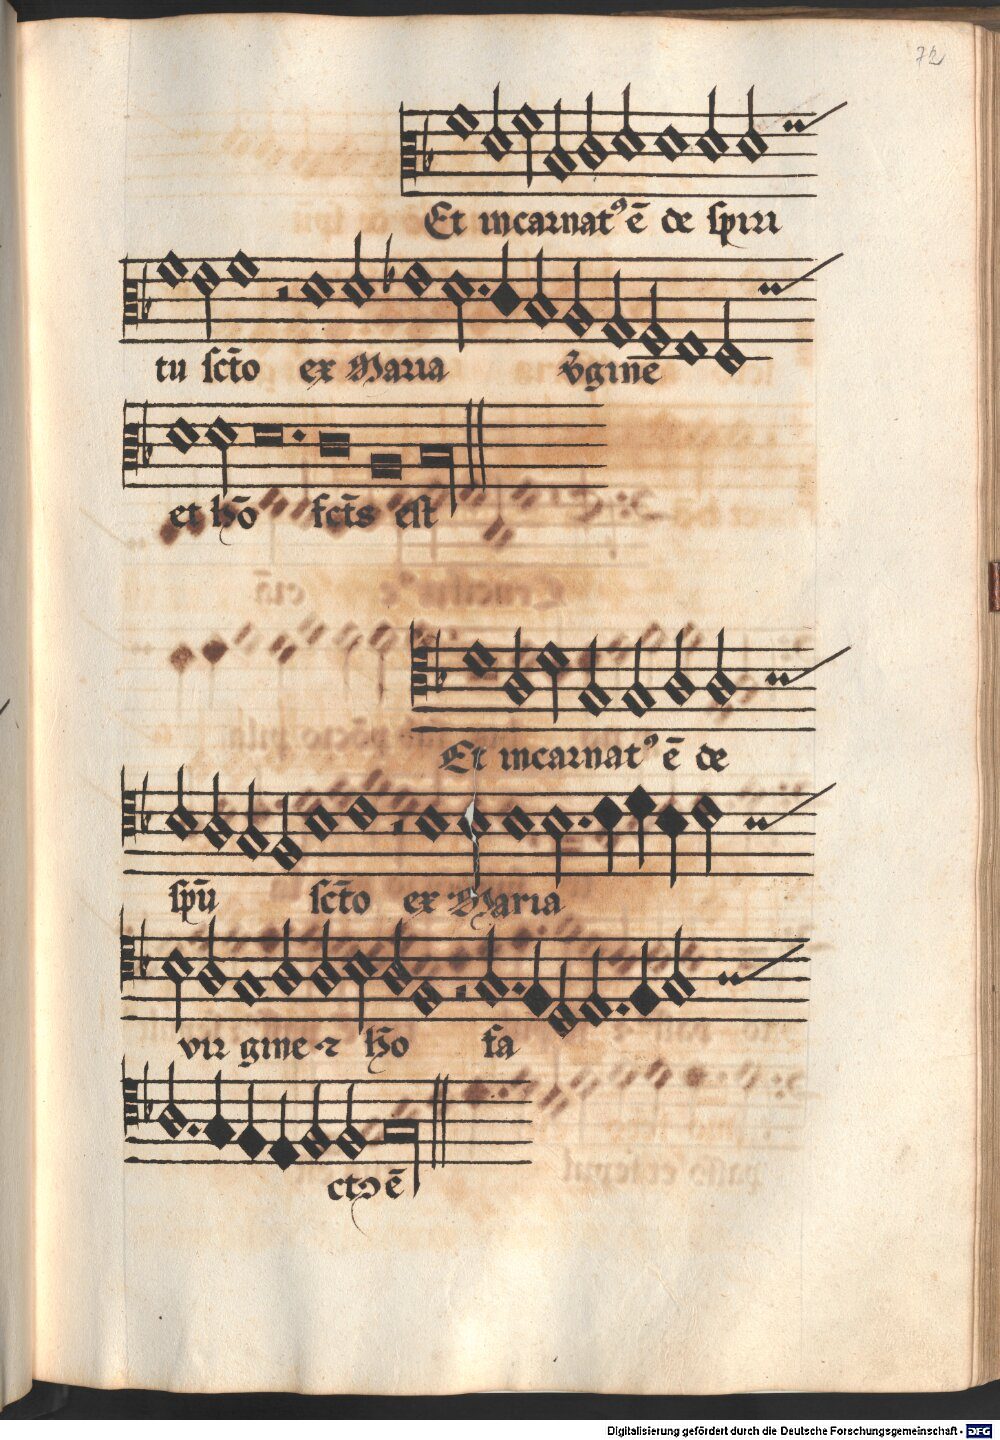 72
Et incarnatꝰ ē de spiri
tu sct̄o ex Maria v̄gine
et hō fct̄s est
Et incarnatꝰ ē de
spū sct̄o ex Maria
vir gine ⁊ hō fa
ctꝰ ē
Digitalisierung gefördert durch die Deutsche Forschungsgemeinschaft - DFG